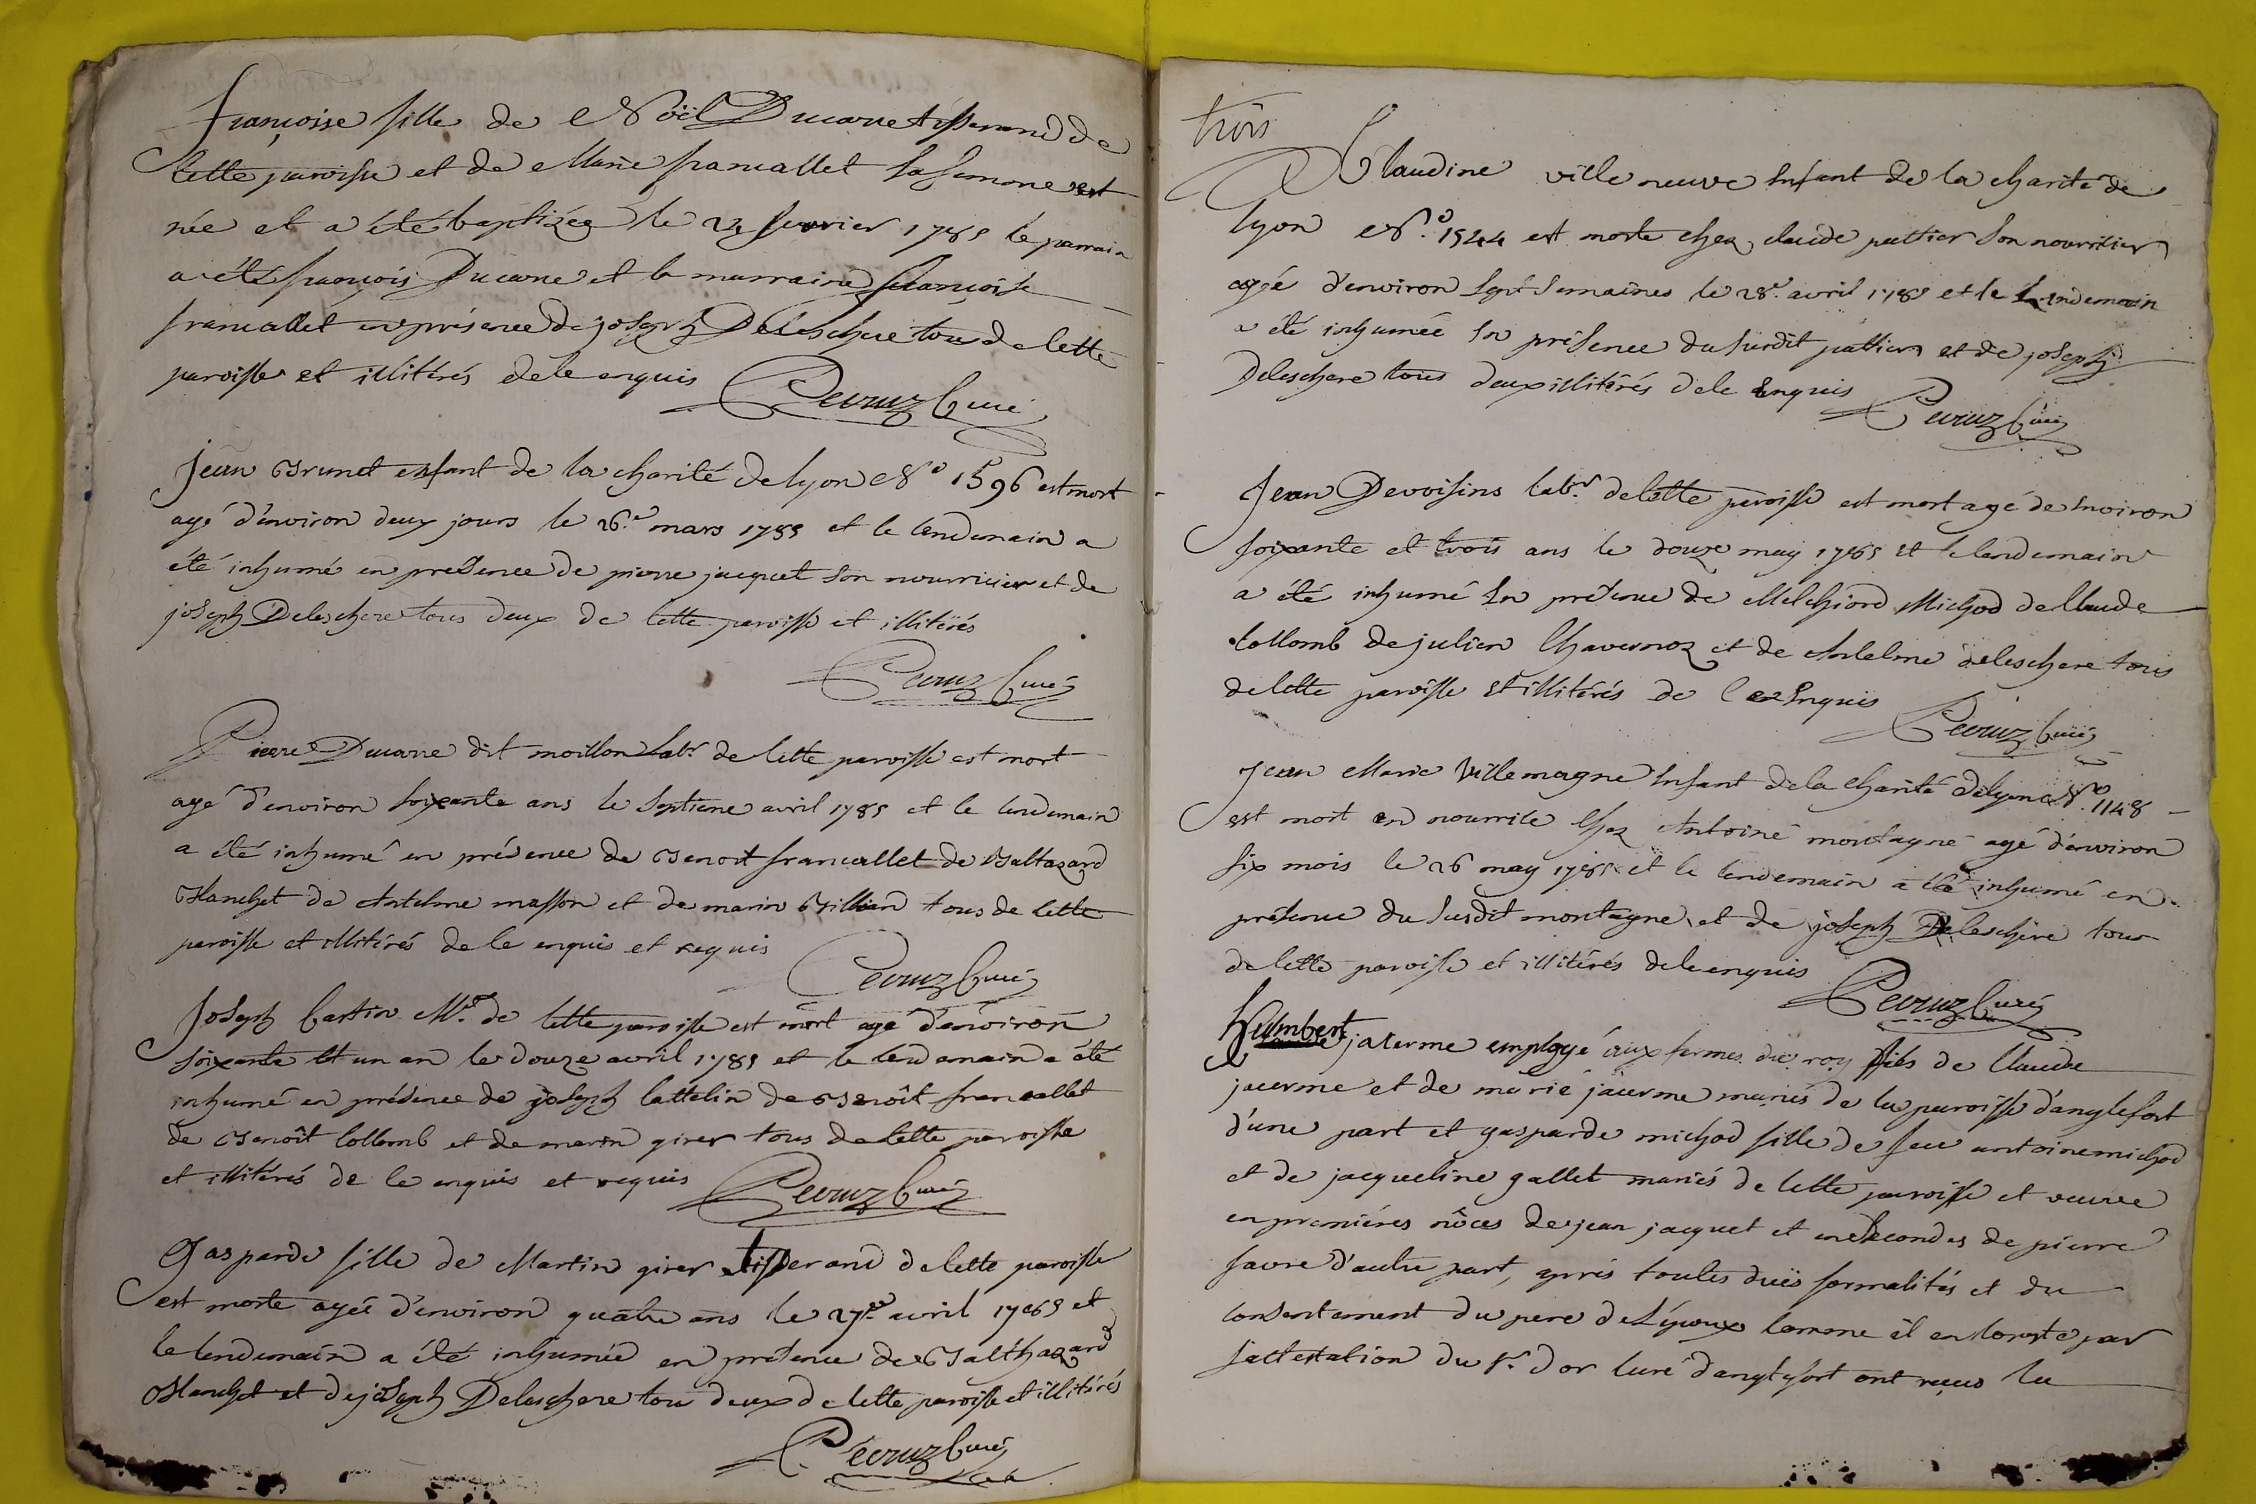 françoise fille de Noël Ducarre tisserand de
cette paroisse et de Marie francallet sa femme est
née et a été baptizée le 24 fevrier 1785 le parrain
a été françois Ducarre et la marraine françoise
francallet en présence de joseph Deleschere tous de cette
paroisse et illitérés de le enquis Pecruz Curé
jean Brunet enfant de la charité de lyon N° 1596 est mort
agé d'environ deux jours le 26e mars 1785 et le lendemain a
été inhumé en presence de pierre jacquet son nourricier et de
joseph Deleschere tous deux de cette paroisse et illitérés
Pecruz Curé
Pierre Ducarre dit moillon labr de cette paroisse est mort
agé d'environ soixante ans le septieme avril 1785 et le lendemain
a été inhumé en présence de Benoit francallet de Baltazard
Blanchet de Antelme masson et de marin Brillian tous de cette
paroisse et illitérés de le enquis et requis
Pecruz Curé
Joseph Cartin Md de cette paroisse est mort agé d'environ
soixante et un an le douze avril 1785 et le lendemain a été
inhumé en présence de joseph Cattelin de Benoît francallet
de Benoît Collomb et de marin girer tous de cette paroisse
et illitérés de le enquis et requis Pecruz Curé
Gasparde fille de Martin girer tisserand de cette paroisse
est morte agée d'environ quatre ans le 27e avril 1785 et
le lendemain a été inhumée en presence de Balthazard
Blanchet et de joseph Deleschere tous deux de cette paroisse et illitérés
Pecruz Curé
trois
Claudine ville neuve Enfant de la charité de
lyon N° 1544 est morte chez claude pattier son nourricier
agée d'environ sept semaines le 28e avril 1785 et le Lendemain
a été inhumée En présence du susdit pattier et de joseph
Deleschere tous deux illitérés de le Enquis
Pecruz Curé
Jean Devoisins labr de cette paroisse est mort agé de Environ
soixante et trois ans le douze may 1785 et le lendemain
a été inhumé En présence de Melchiord Michod de Claude
Collomb de julien Chavernoz et de Antelme deleschere tous
de cette paroisse Et illitérés de le Enquis
Pecruz Curé
jean Marie Villemagne Enfant de la Charité de lyon N° 1148
est mort en nourrice Chez Antoine montagne agé d'environ
six mois le 26 may 1785 et le lendemain a été inhumé en
présence du susdit montagne et de joseph Deleschére tous
de cette paroisse et illitérés de le enquis
Pecruz Curé
Humbert jacerme employé aux fermes du roy fils de Claude
jacerme et de marie jacerme mariés de la paroisse d'anglefort
d'une part et gasparde michod fille de feu antoine michod
et de jacqueline gallet mariés de cette paroisse et veuve
en premiéres nôces de jean jacquet et en secondes de pierre
favre d'autre part, aprés toutes duës formalités et du
consentement du pere de L'époux comme il en conste par
l'attestation du Sr Dor Curé d'anglefort ont reçus la